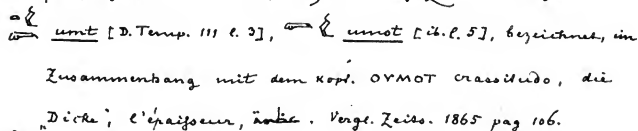 umt [D. Temp. III l. 3], umot [ib. l. 5], bezeichnet, im
Zusammenhang mit dem kopt. ΟΥΜΟΤ crassitudo, die
„Dicke", l'épaisseur, . Vergl. Zeits. 1865 pag 106.